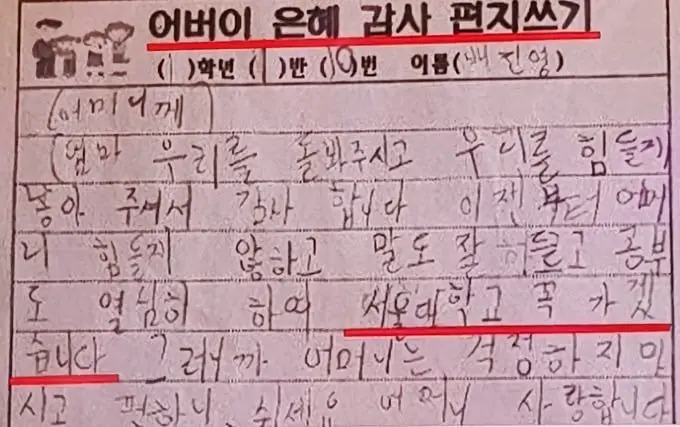 어버이 은혜 감사 편지쓰기
(1)학년 (1)반 (10)번 이름(배진영)
(어머니께)
(엄마 우리를 돌봐주시고 우리를 힘들지
않아 주셔서 감사 합니다 이진부터 어머
니 힘들지 않하고 말도 잘 허들고 공부
도 열심히 하여 서울대학고 꼭 가겠
습니다 그러니까 어머니는 걱정하지마
시고 편하니 쉬세요 어머니 사랑합니다